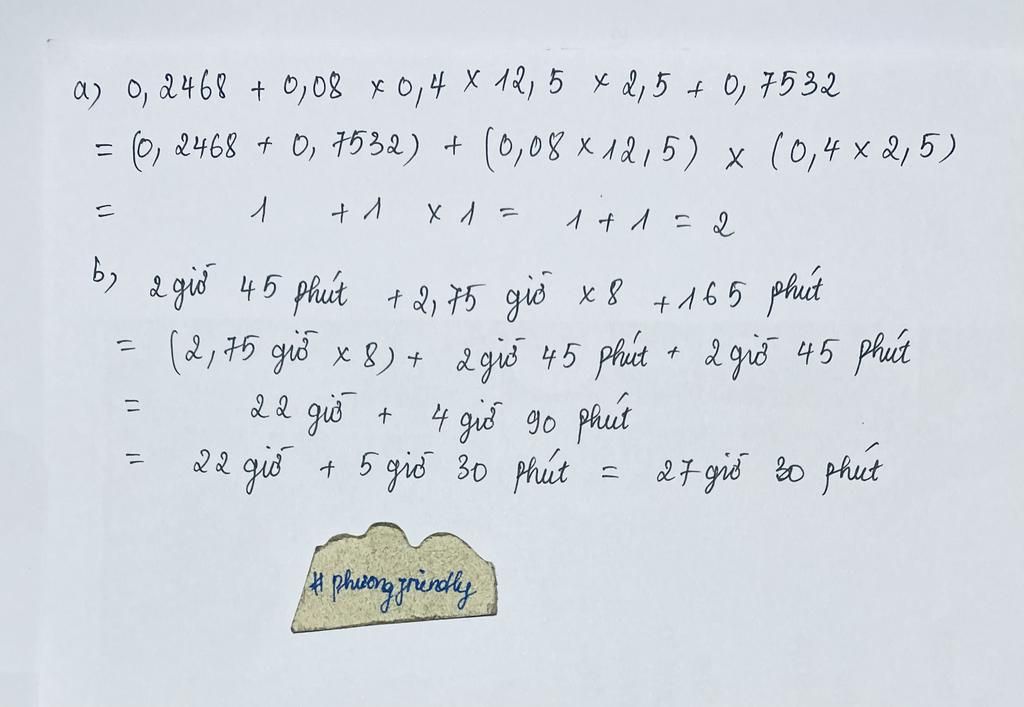 a) 0,2468 + 0,08 x 0,4 x 12,5 x 2,5 + 0,7532
= (0,2468 + 0,7532) + (0,08 x 12,5) x (0,4 x 2,5)
= 1 + 1 x 1 = 1 + 1 = 2
b) 2 giờ 45 phút + 2,75 giờ x 8 + 165 phút
= (2,75 giờ x 8) + 2 giờ 45 phút + 2 giờ 45 phút
= 22 giờ + 4 giờ 90 phút
= 22 giờ + 5 giờ 30 phút = 27 giờ 30 phút
# phuongfriendly